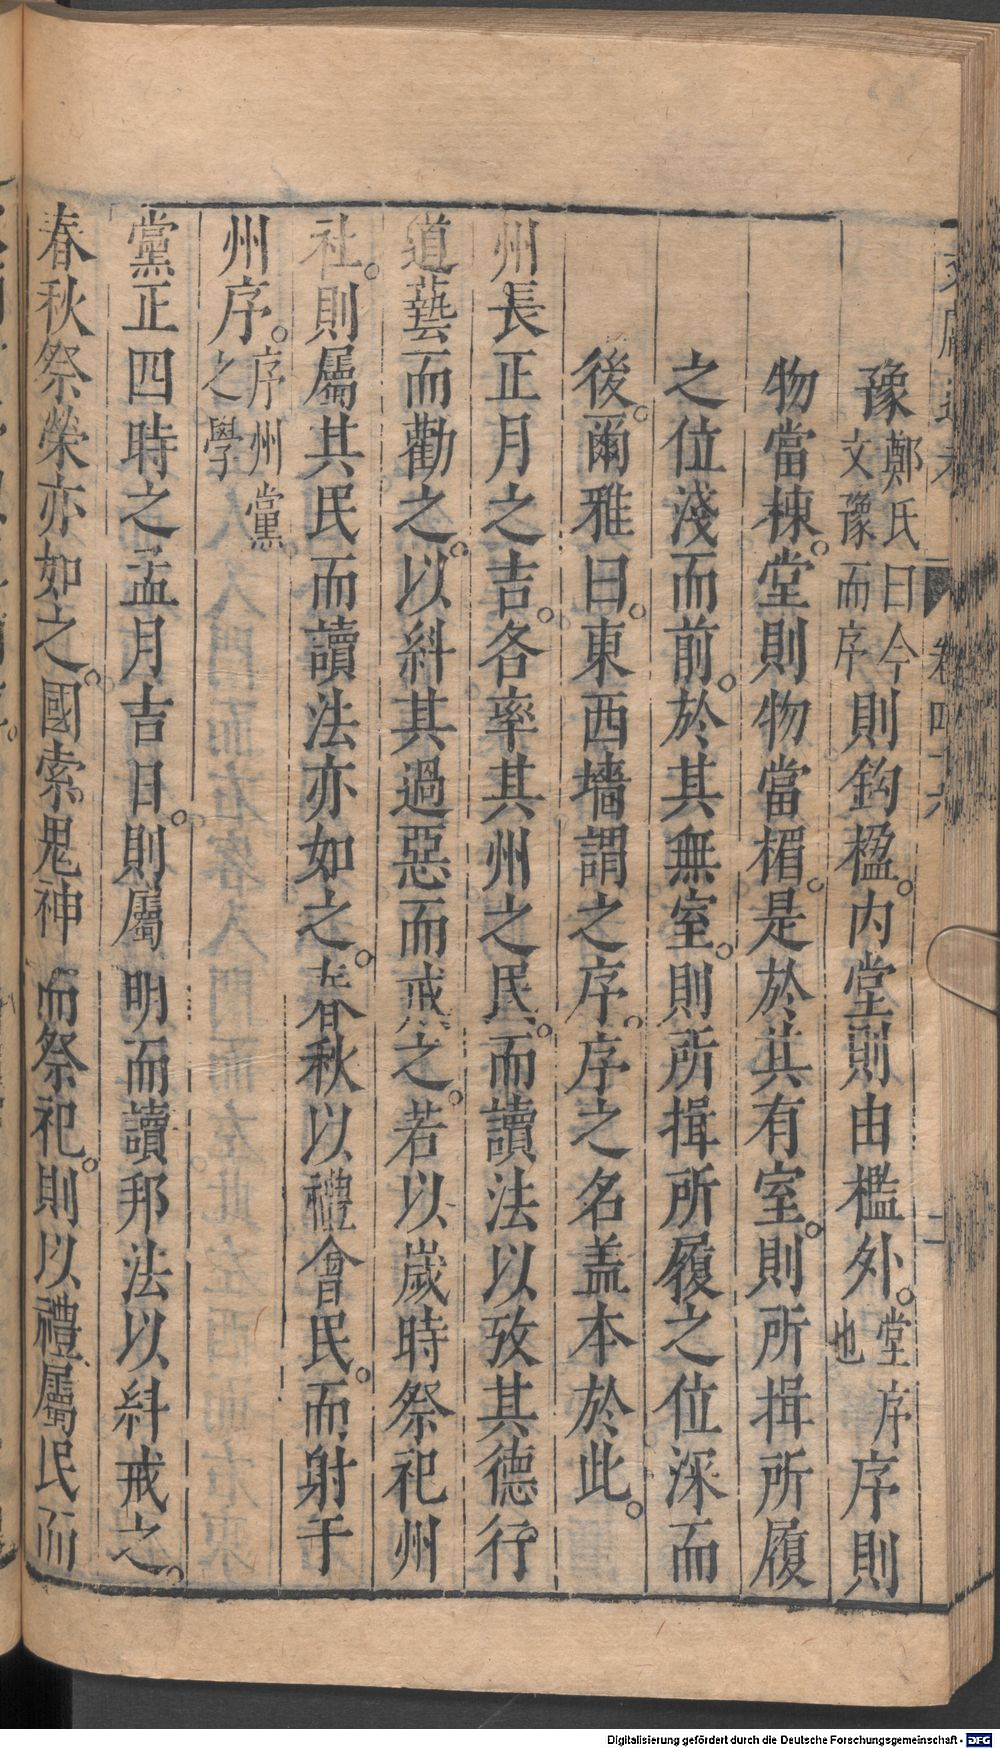 豫鄭氏曰今文豫而序則鈎楹。内堂則由檻外。堂序也序則
物當棟。堂則物當楣。是於其有室。則所揖所履
之位淺而前。於其無室。則所揖所履之位深而
後。爾雅曰。東西墻謂之序。序之名盖本於此。
州長正月之吉。各率其州之民。而讀法以攷其德行
道藝而勸之。以糾其過惡而戒之。若以歲時祭祀州
社。則屬其民而讀法亦如之。春秋以禮會民。而射于
州序。序州黨之學
黨正四時之孟月吉日。則屬明而讀邦法以糾戒之。
春秋祭禜亦如之。國索鬼神而祭祀。則以禮屬民而
卷四十六
二
Digitalisierung gefördert durch die Deutsche Forschungsgemeinschaft - DFG